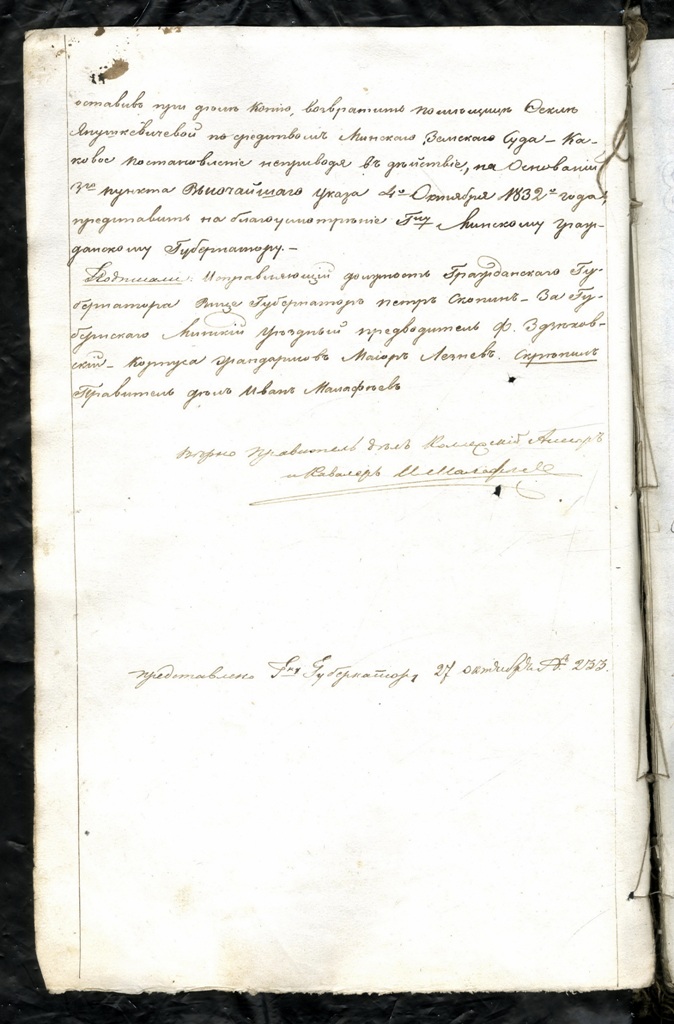 оставивъ при дѣлѣ копію, возвратить помѣщицѣ Ѳеклѣ
Янушкевичевой по средствомъ Минскаго Земскаго Суда – Ка-
ковое постановленіе неприводя въ дѣйствіе, на Основаніи
3го пункта Высочайшаго указа 4го Октября 1832го года,
представить на благоусмотрѣніе Гну Минскому граж-
данскому Губернатору. –
Подписали: Исправляющій должность Гражданскаго Гу-
бернатора Вице Губернаторъ петръ Скопинъ – За Гу-
бернскаго Минскій Уѣздный предводитель Ф. Здзѣхов-
скій – Корпуса жандармовъ Маіоръ Лезневъ. Скрѣпилъ
Правитель дѣлъ Иванъ Малафѣевъ
Вѣрно Правитель дѣлъ Коллежскій Асесоръ
и Кавалеръ И Малафѣевъ
представлено Гну Губернатору 27 октября № 233.